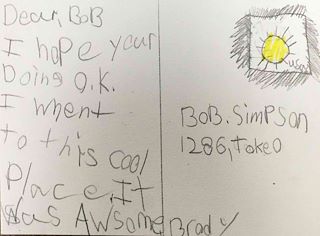 Dear, BoB
I hope your
Doing O.K.
I whent
to this cool
Place. It
was Awsome
Brady
USA
BoB. Simpson
1286, Tokeo